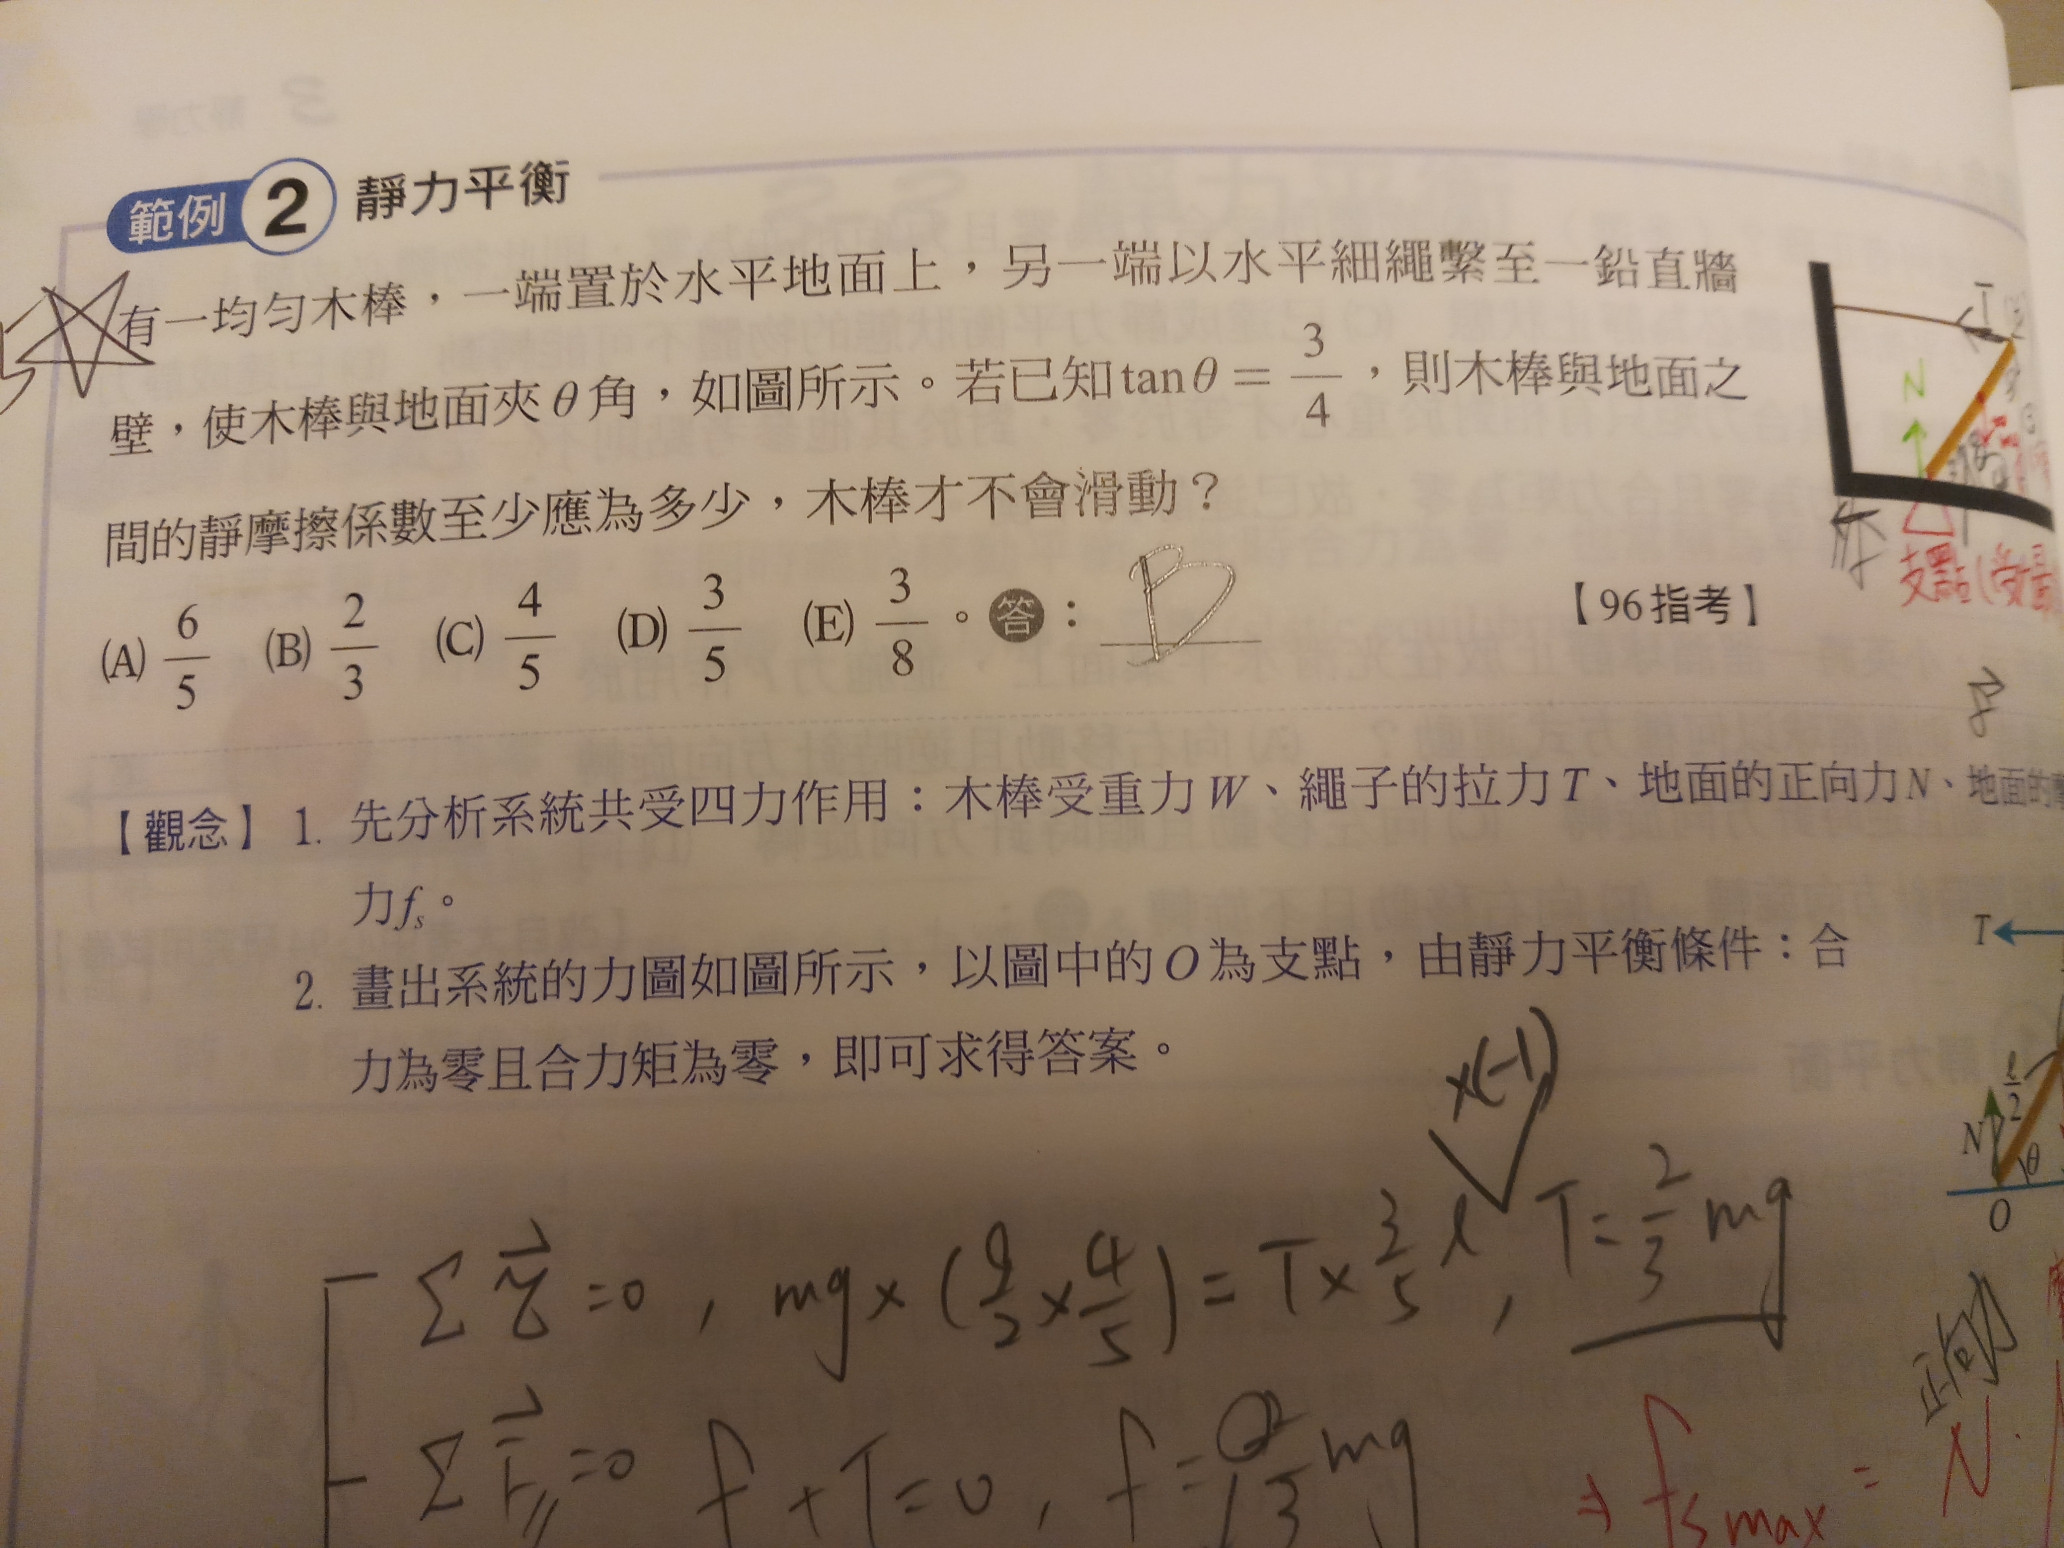 範例 2 靜力平衡
有一均勻木棒，一端置於水平地面上，另一端以水平細繩繫至一鉛直牆
壁，使木棒與地面夾θ角，如圖所示。若已知tanθ=3/4，則木棒與地面之
間的靜摩擦係數至少應為多少，木棒才不會滑動？
(A) 6/5 (B) 2/3 (C) 4/5 (D) 3/5 (E) 3/8。答：B
【96指考】
T
N
支點(受
【觀念】1. 先分析系統共受四力作用：木棒受重力W、繩子的拉力T、地面的正向力N、地面的
力fs。
2. 畫出系統的力圖如圖所示，以圖中的O為支點，由靜力平衡條件：合
力為零且合力矩為零，即可求得答案。
T
ℓ/2
N
θ
O
×(-1)
Στ=0, mg×(ℓ/2×4/5)=T×3/5ℓ, T=2/3mg
正向力
ΣF//=0 f+T=0, f=2/3mg
⇒ fsmax = N·